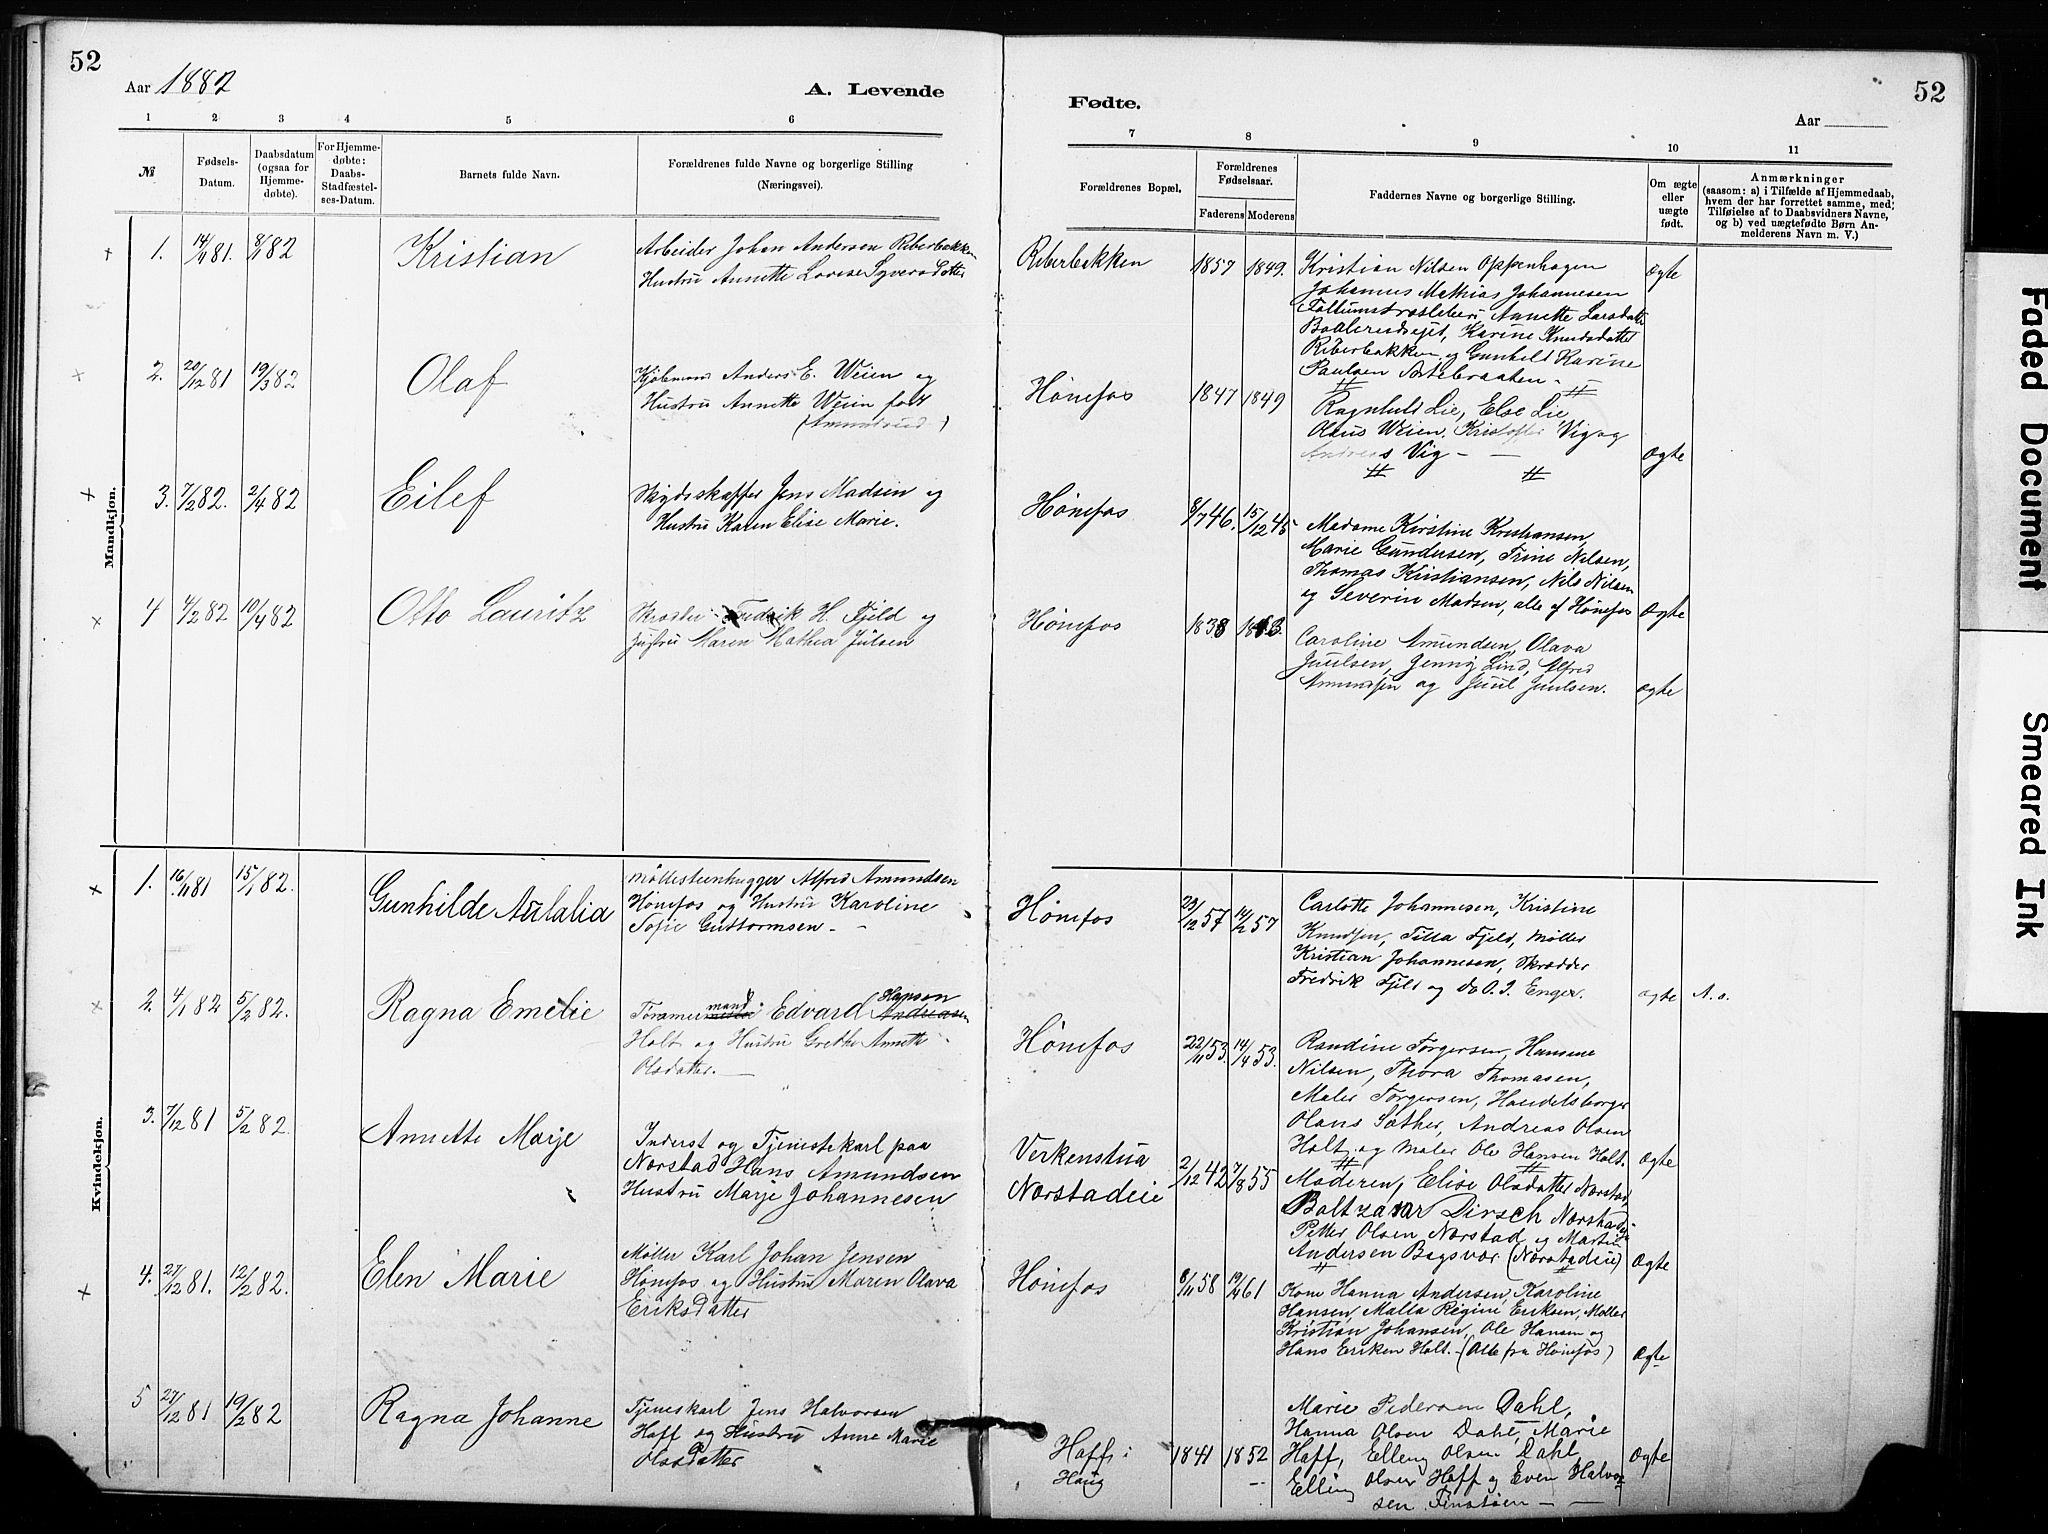 52
Aar 1882
A. Levende
1 2 3 4 5 6
№
Fødsels-Datum.
Daabsdatum (ogsaa for Hjemme-døbte).
For Hjemme-døbte: Daabs-Stadfæstel-ses-Datum.
Barnets fulde Navn.
Forældrenes fulde Navne og borgerlige Stilling
(Næringsvei).
Mandkjøn.
1. 14/11 81. 8/1 82 Kristian
Arbeider Johan Andersen Riberbakken
Hustru Annette Lovise Syversdatter
2. 20/12 81 19/3 82 Olaf
Kjøbmand Anders E. Weien og
Hustru Annette Weien født
(Amundsrud)
3. 7/2 82. 2/4 82 Eilef
Skydsskaffer Jens Madsen og
Hustru Karen Elise Marie.
4 4/2 82 10/4 82 Otto Lauritz
Skrædder Fredrik H. Fjeld og
Hustru Maren Mathea Julsen
Kvindekjøn.
1. 16/11 81 15/1 82. Gunhilde Aulalia
Møllesteenhugger Alfred Amundsen
Hønefos og Hustru Karoline
Tofie Guttormsen -
2. 4/1 82 5/2 82. Ragna Emelie
mand Hansen
Tømmer Edvard Andreasen
Holt og Hustru Grethe Annette
Olsdatter. -
3. 7/12 81 5/2 82. Annette Marje
Inderst og Tjenestekarl paa
Norstad Hans Amundsen
Hustru Marje Johannesen
4. 27/12 81. 12/2 82. Elen Marie
Møller Karl Johan Jensen
Hønefos og Hustru Maren Olava
Eriksdatter
5 27/12 81 19/2 82 Ragna Johanne
Tjeneskarl Jens Halvorsen
Hoff og Hustru Anne Marie
Olsdatter
52
Fødte.
Aar
7 8 9 10 11
Forældrenes Bopæl.
Forældrenes Fødselsaar.
Faderens Moderens
Faddernes Navne og borgerlige Stilling.
Om ægte eller uægte født.
Anmærkninger
(saasom: a) i Tilfælde af Hjemmedaab,
hvem der har forrettet samme, med
Tilføielse af to Daabsvidners Navne,
og b) ved uægtefødte Børn An-
melderens Navn m. V.)
Riberbakken 1857 1849.
Kristian Nilsen Oppenhagen
Johannes Mathias Johannesen
Annette Larsdatter
Karine Knudsdatter
Riberbakken og Gunhild Karine
Paulsen -
Ægte
Hønefos 1847 1849
Ragnhild Lie, Else Lie,
Olaus Weien, Kristoffer Vig og
Andreas Vig -
Ægte
Hønefos 8/7 46. 15/12 45
Madame Kirstine Kristiansen,
Marie Gundersen, Trine Nilsen,
Thomas Kristiansen, Nils Nilsen
og Severin Madsen, alle af Hønefos
Ægte
Hønefos 1838
Caroline Amundsen, Olava
Juulsen, Jenny Lind, Alfred
Amundsen og Juul Juulsen.
ægte
Hønefos 23/12 57 14/2 57
Carlotte Johannesen, Kristine
Knudsen, Tilla Fjeld, Møller
Kristian Johannesen, Skrædder
Fredrik Fjeld og do O. J. Enger.
ægte A. A.
Hønefos 22/11 53. 14/4 53.
Randine Torgersen, Hansine
Nilsen, Thora Thomasen,
Maler Torgersen, Handelsborger
Olaus Sæther, Andreas Olsen
Holt og Maler Ole Hansen Holt.
Ægte
Verkenstua
Norstadeie
2/12 42 7/8 55
Moderen, Elise Olsdatter Norstad,
Boltzasar Dirsch Norstadeie
Petter Olsen Norstad og Martin
Andersen Bagsvor (Norstadeie)
Ægte
Hønefos 8/11 58 19/4 61
Kone Hanna Andersen, Karoline
Hansen, Malla Regine Eriksen, Møller
Kristian Johansen, Ole Hansen og
Hans Eriken Holt. - (Alle fra Hønefos)
Ægte
Hoff i
Haug
1841 1852
Marie Pedersen Dahl,
Hanna Olsen Dahl, Marie
Hoff, Elling Olsen Dahl,
Elling Olsen Hoff og Even Halvor-
sen -
Ægte
Faded Document
Smeared Ink